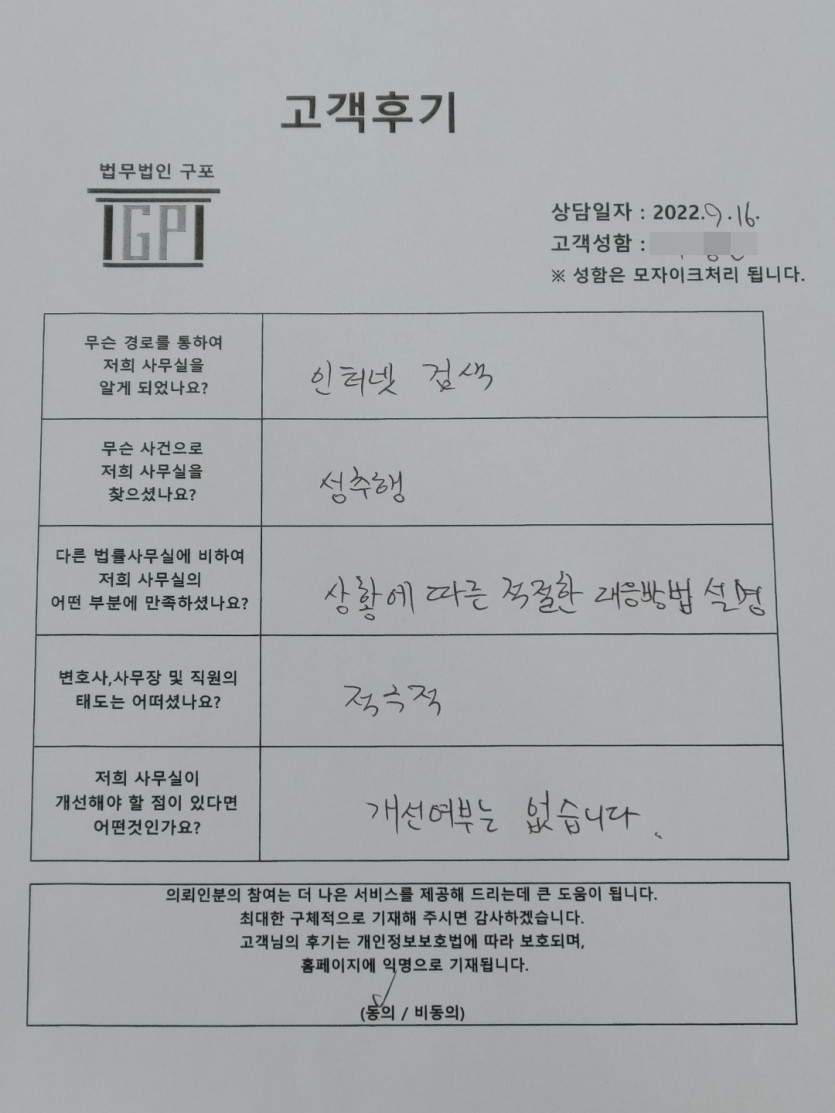 고객후기
법무법인 구포
IGPI
상담일자 : 2022.9.16.
고객성함 :
※ 성함은 모자이크처리 됩니다.
무슨 경로를 통하여
저희 사무실을
알게 되었나요?
인터넷 검색
무슨 사건으로
저희 사무실을
찾으셨나요?
성추행
다른 법률사무실에 비하여
저희 사무실의
어떤 부분에 만족하셨나요?
상황에 따른 적절한 대응방법 설명
변호사,사무장 및 직원의
태도는 어떠셨나요?
적극적
저희 사무실이
개선해야 할 점이 있다면
어떤것인가요?
개선여부는 없습니다.
의뢰인분의 참여는 더 나은 서비스를 제공해 드리는데 큰 도움이 됩니다.
최대한 구체적으로 기재해 주시면 감사하겠습니다.
고객님의 후기는 개인정보보호법에 따라 보호되며,
홈페이지에 익명으로 기재됩니다.
(동의 / 비동의)